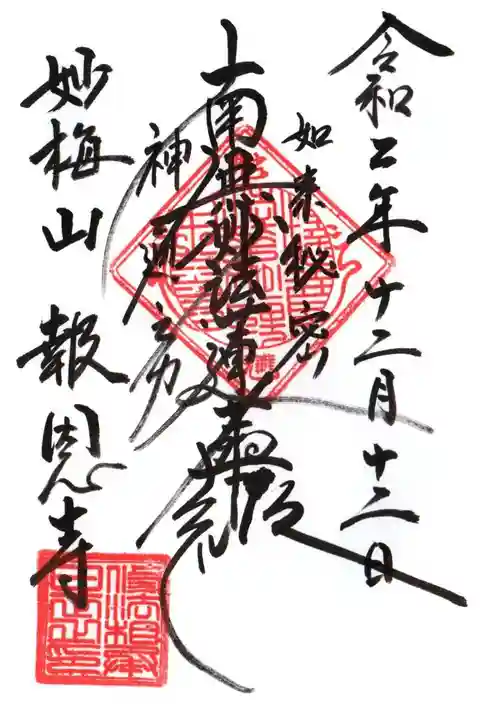 令和二年十二月十二日
如来秘密
南無妙法蓮華経
神通之力
妙梅山 報恩寺